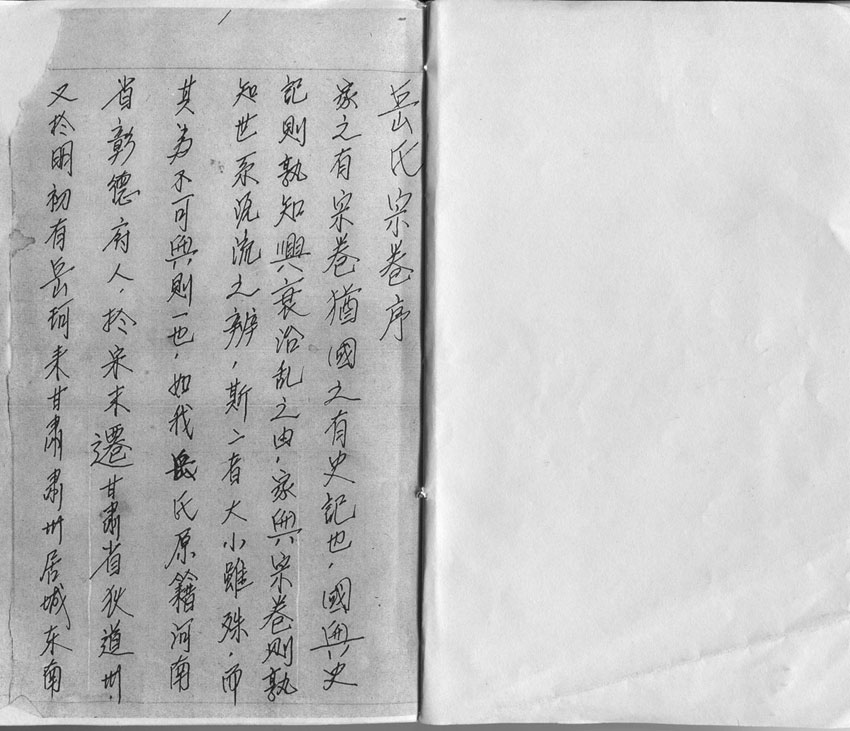 岳氏宗卷序
家之有宗卷猶國之有史記也，國興史
記則孰知興衰治乱之由，家興宗卷則孰
知世系源流之辨，斯二者大小雖殊，而
其为不可興則一也，如我岳氏原籍河南
省彰德府人，於宋末遷甘肅省狄道州，
又於明初有岳珂来甘肅肅州居城东南